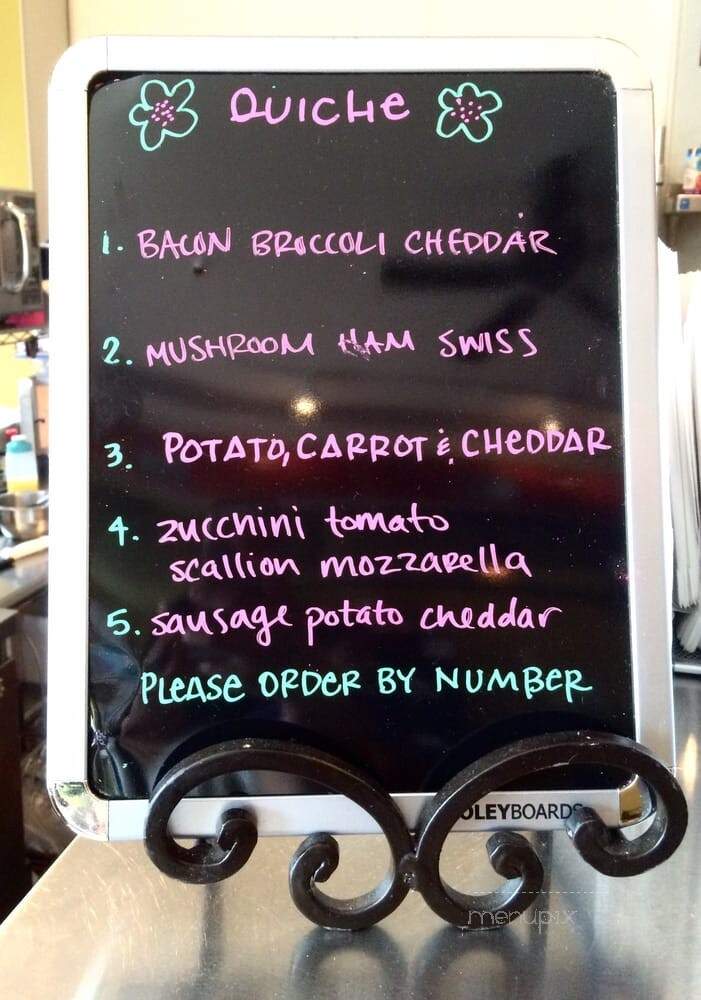 QUICHE
1. BACON BROCCOLI CHEDDAR
2. MUSHROOM HAM SWISS
3. POTATO, CARROT & CHEDDAR
4. zucchini tomato
scallion mozzarella
5. sausage potato cheddar
PLEASE ORDER BY NUMBER
OLEYBOARDS
menupix